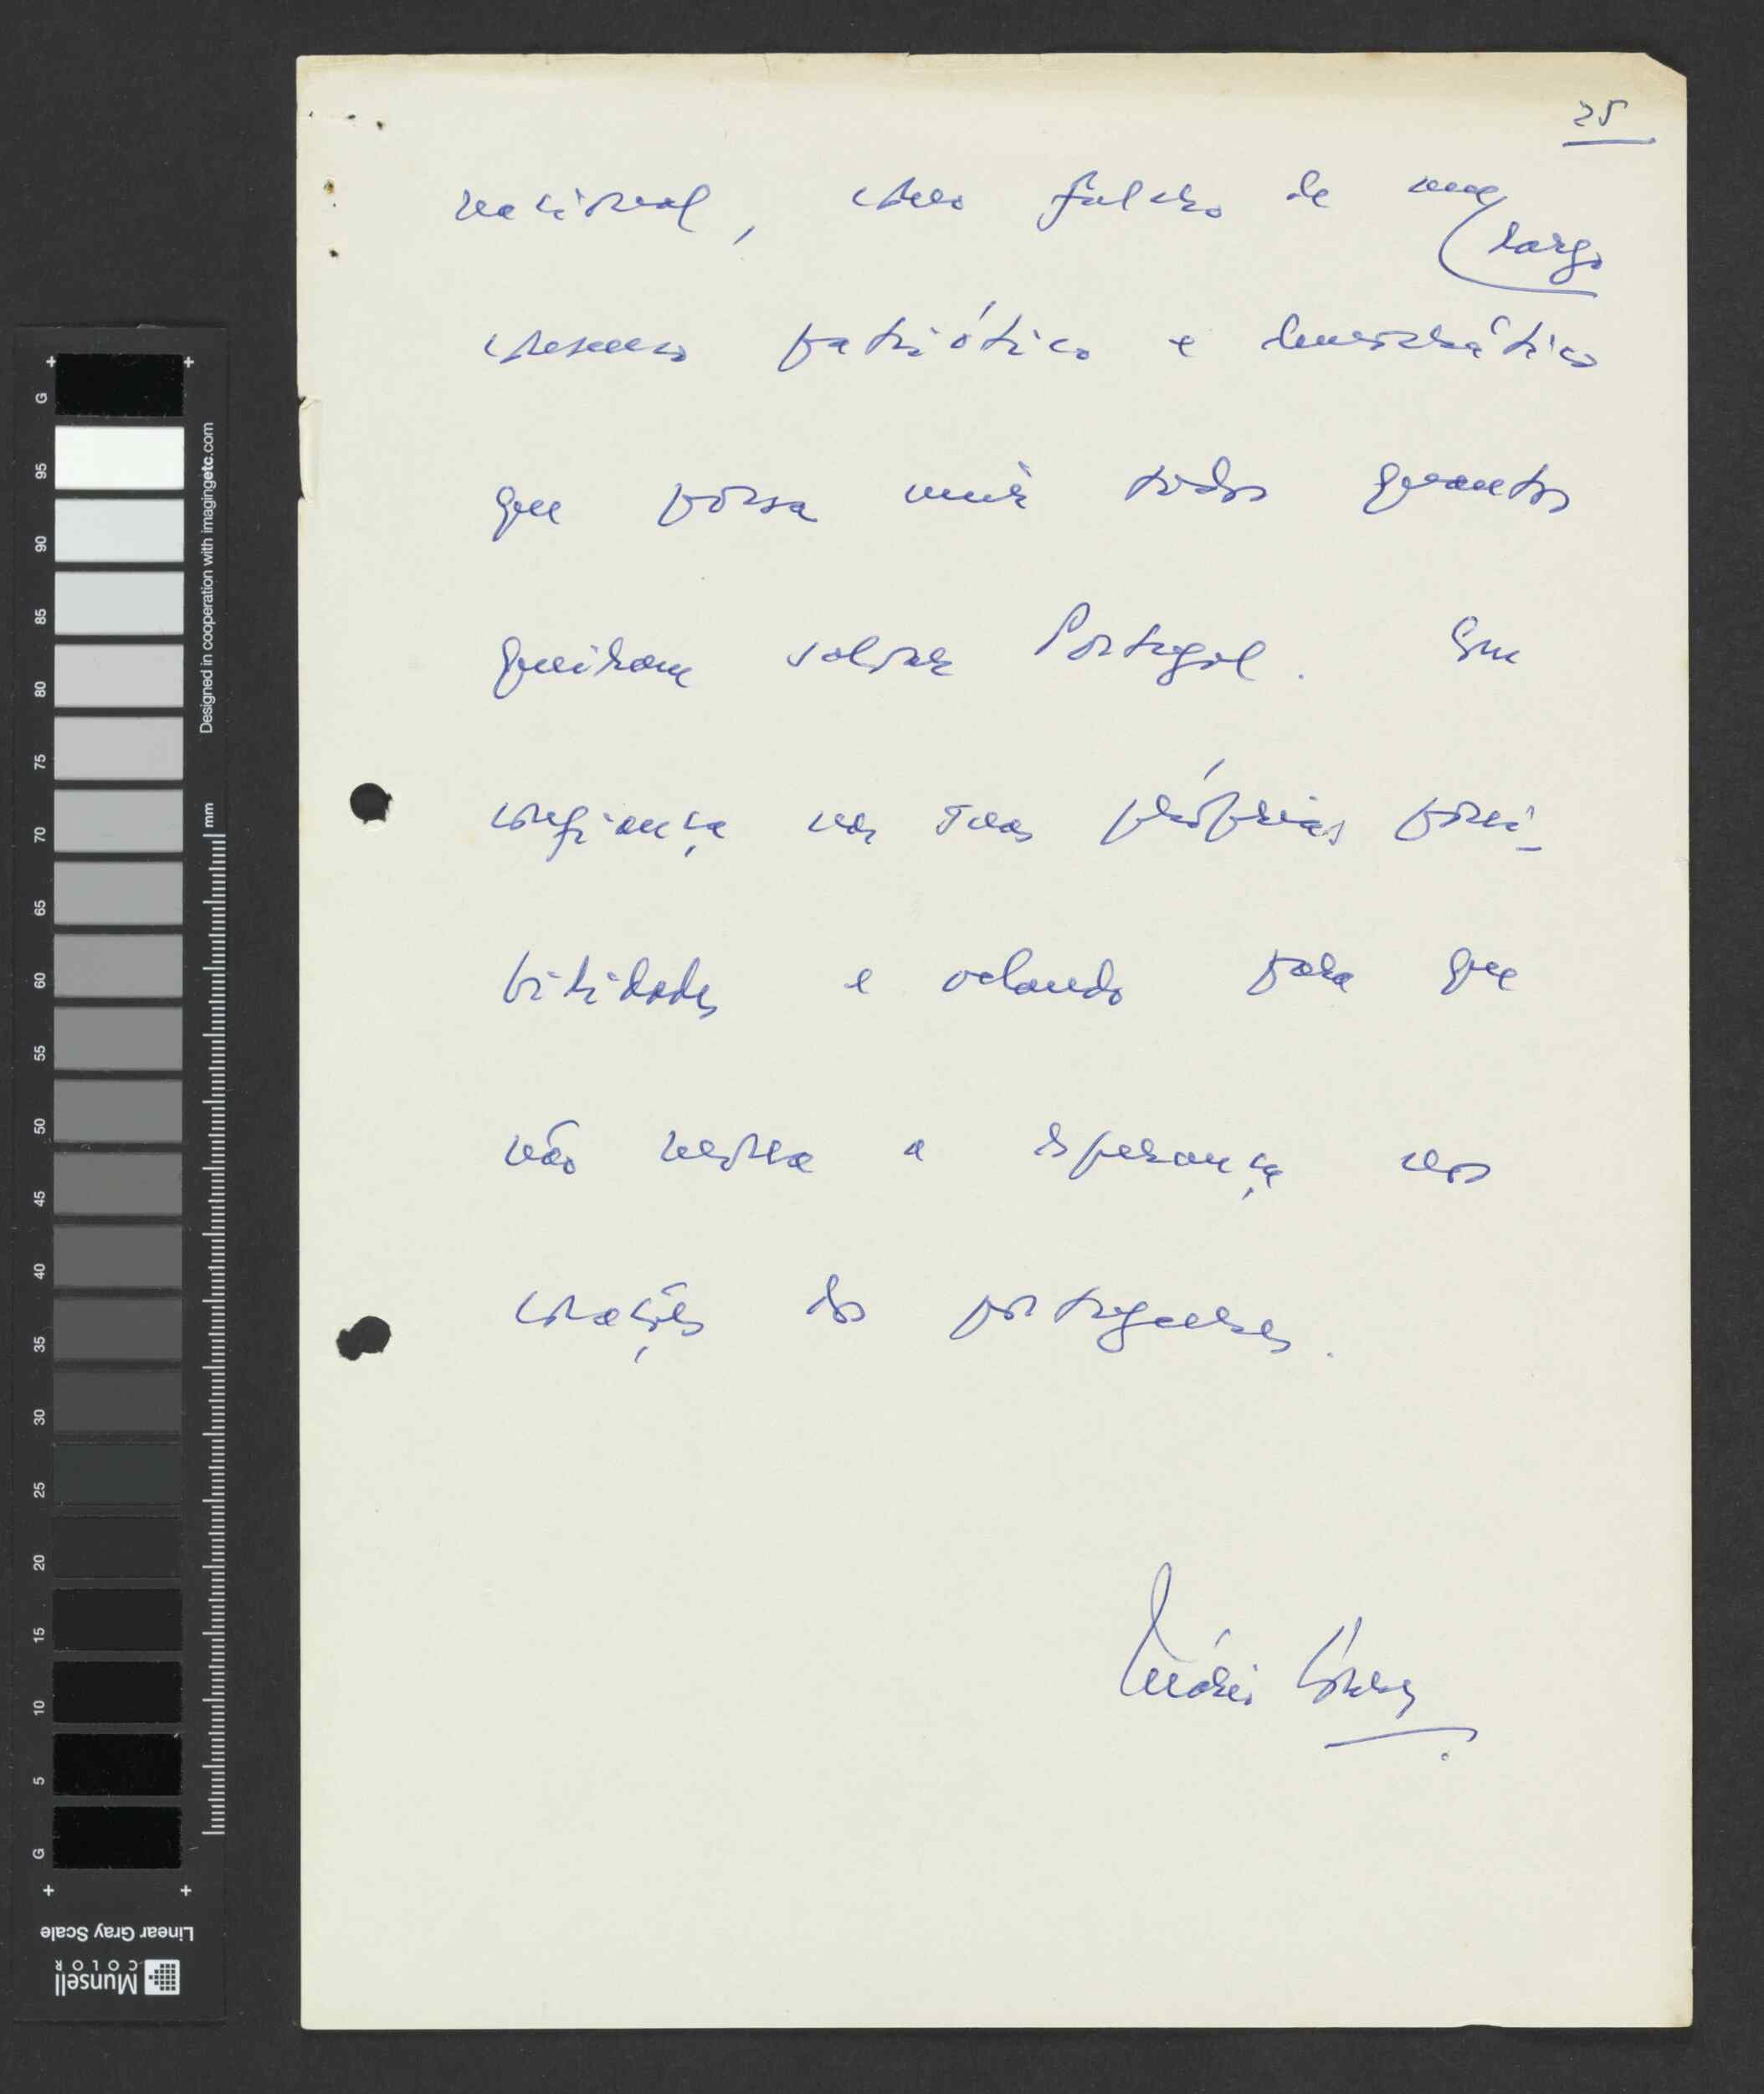 25
nacional, como fulcro de um
largo
consenso patriótico e democrático
que possa unir todos quantos
queiram salvar Portugal. Em
confiança nas suas próprias possi-
bilidades e velando para que
não morra a esperança nos
corações dos portugueses.
Mário Soares
G
95
90
85
80
75
70
65
60
55
50
45
40
35
30
25
20
15
10
5
G
Designed in cooperation with imagingetc.com
mm
Linear Gray Scale
Munsell
COLOR